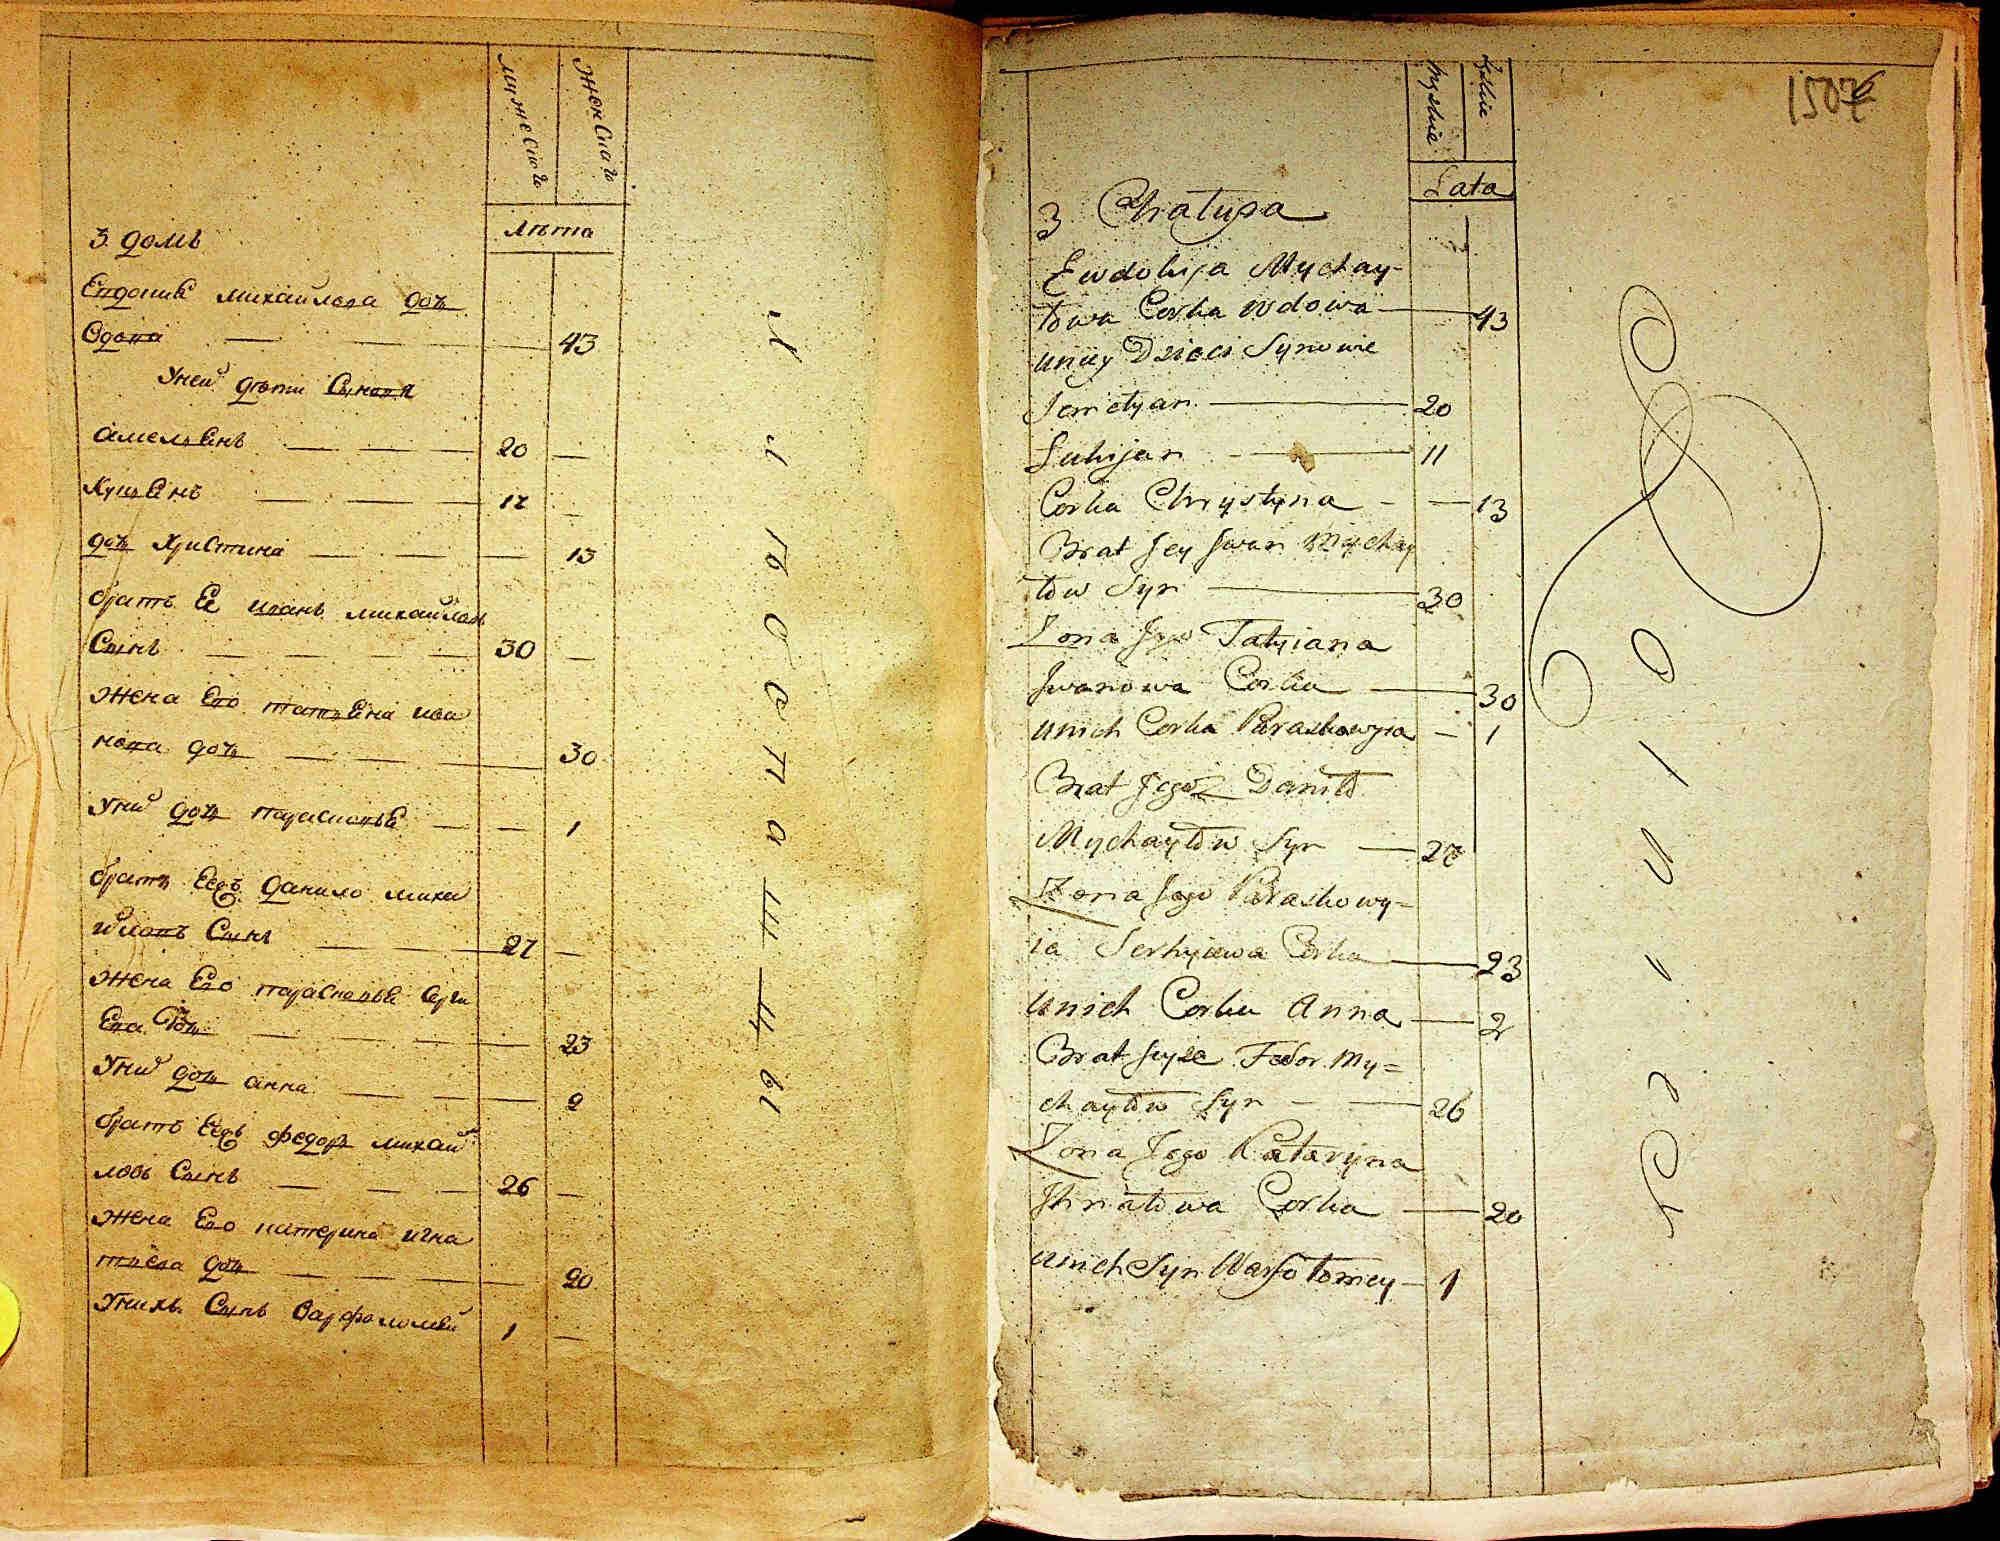 мужескаго
женскаго
лѣта
3 домъ
Евдокиѣ михаилова дочь
вдова — — 43
Уней дѣти Сыновя
Амельѣнъ — — — 20 —
Лукьѣнъ — — — 11 —
дочь Христина — — — 13
братъ Ее иванъ михаиловъ
Сынъ — — — — 30 —
жена Его татьѣна ива
нова дочь — — — 30
Уних дочь парасковьѣ — — 1
братъ Еєѣ данило михаи
йловъ Сынъ — — 27 —
жена Его парасковьѣ серги
Ева дочь — — — — 23
Уних дочь анна — — — 2
братъ Еєѣ федоръ михаи
ловъ Сынъ — — — 26 —
жена Его катерина игна
тиева дочь — — — 20
Унихъ Сынъ Варфоломѣй 1 —
Слободпащцы
1507
Męskie
Żeńskie
Lata
3 Chałupa
Ewdokija Mychay=
łowa Corka wdowa — 43
uniey Dzieci Synowie
Jemelyan — 20
Lukijan — 11
Corka Chrystyna - — 13
Brat Jey Jwan Mychay
łow Syn — 30
Zona Jego Tatyiana
Jwanowa Corka — 30
unich Corka Paraskowyia — 1
Brat Jegoż Daniło
Mychayłow Syn — 27
Zona Jego Paraskowy=
ia Serhyiewa Corka — 23
unich Corka Anna — 2
Brat Jeyże Fedor My=
chayłow Syn - — 26
Zona Jego Kataryna
Jhnatowa Corka — 20
unich Syn Warfołomey — 1